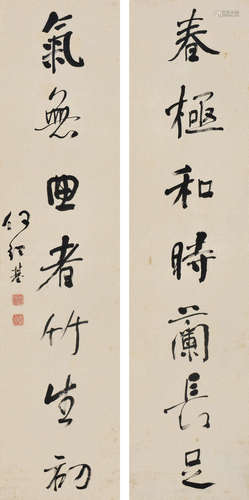 春極和時蘭長足
氣無回者竹生初
何紹基